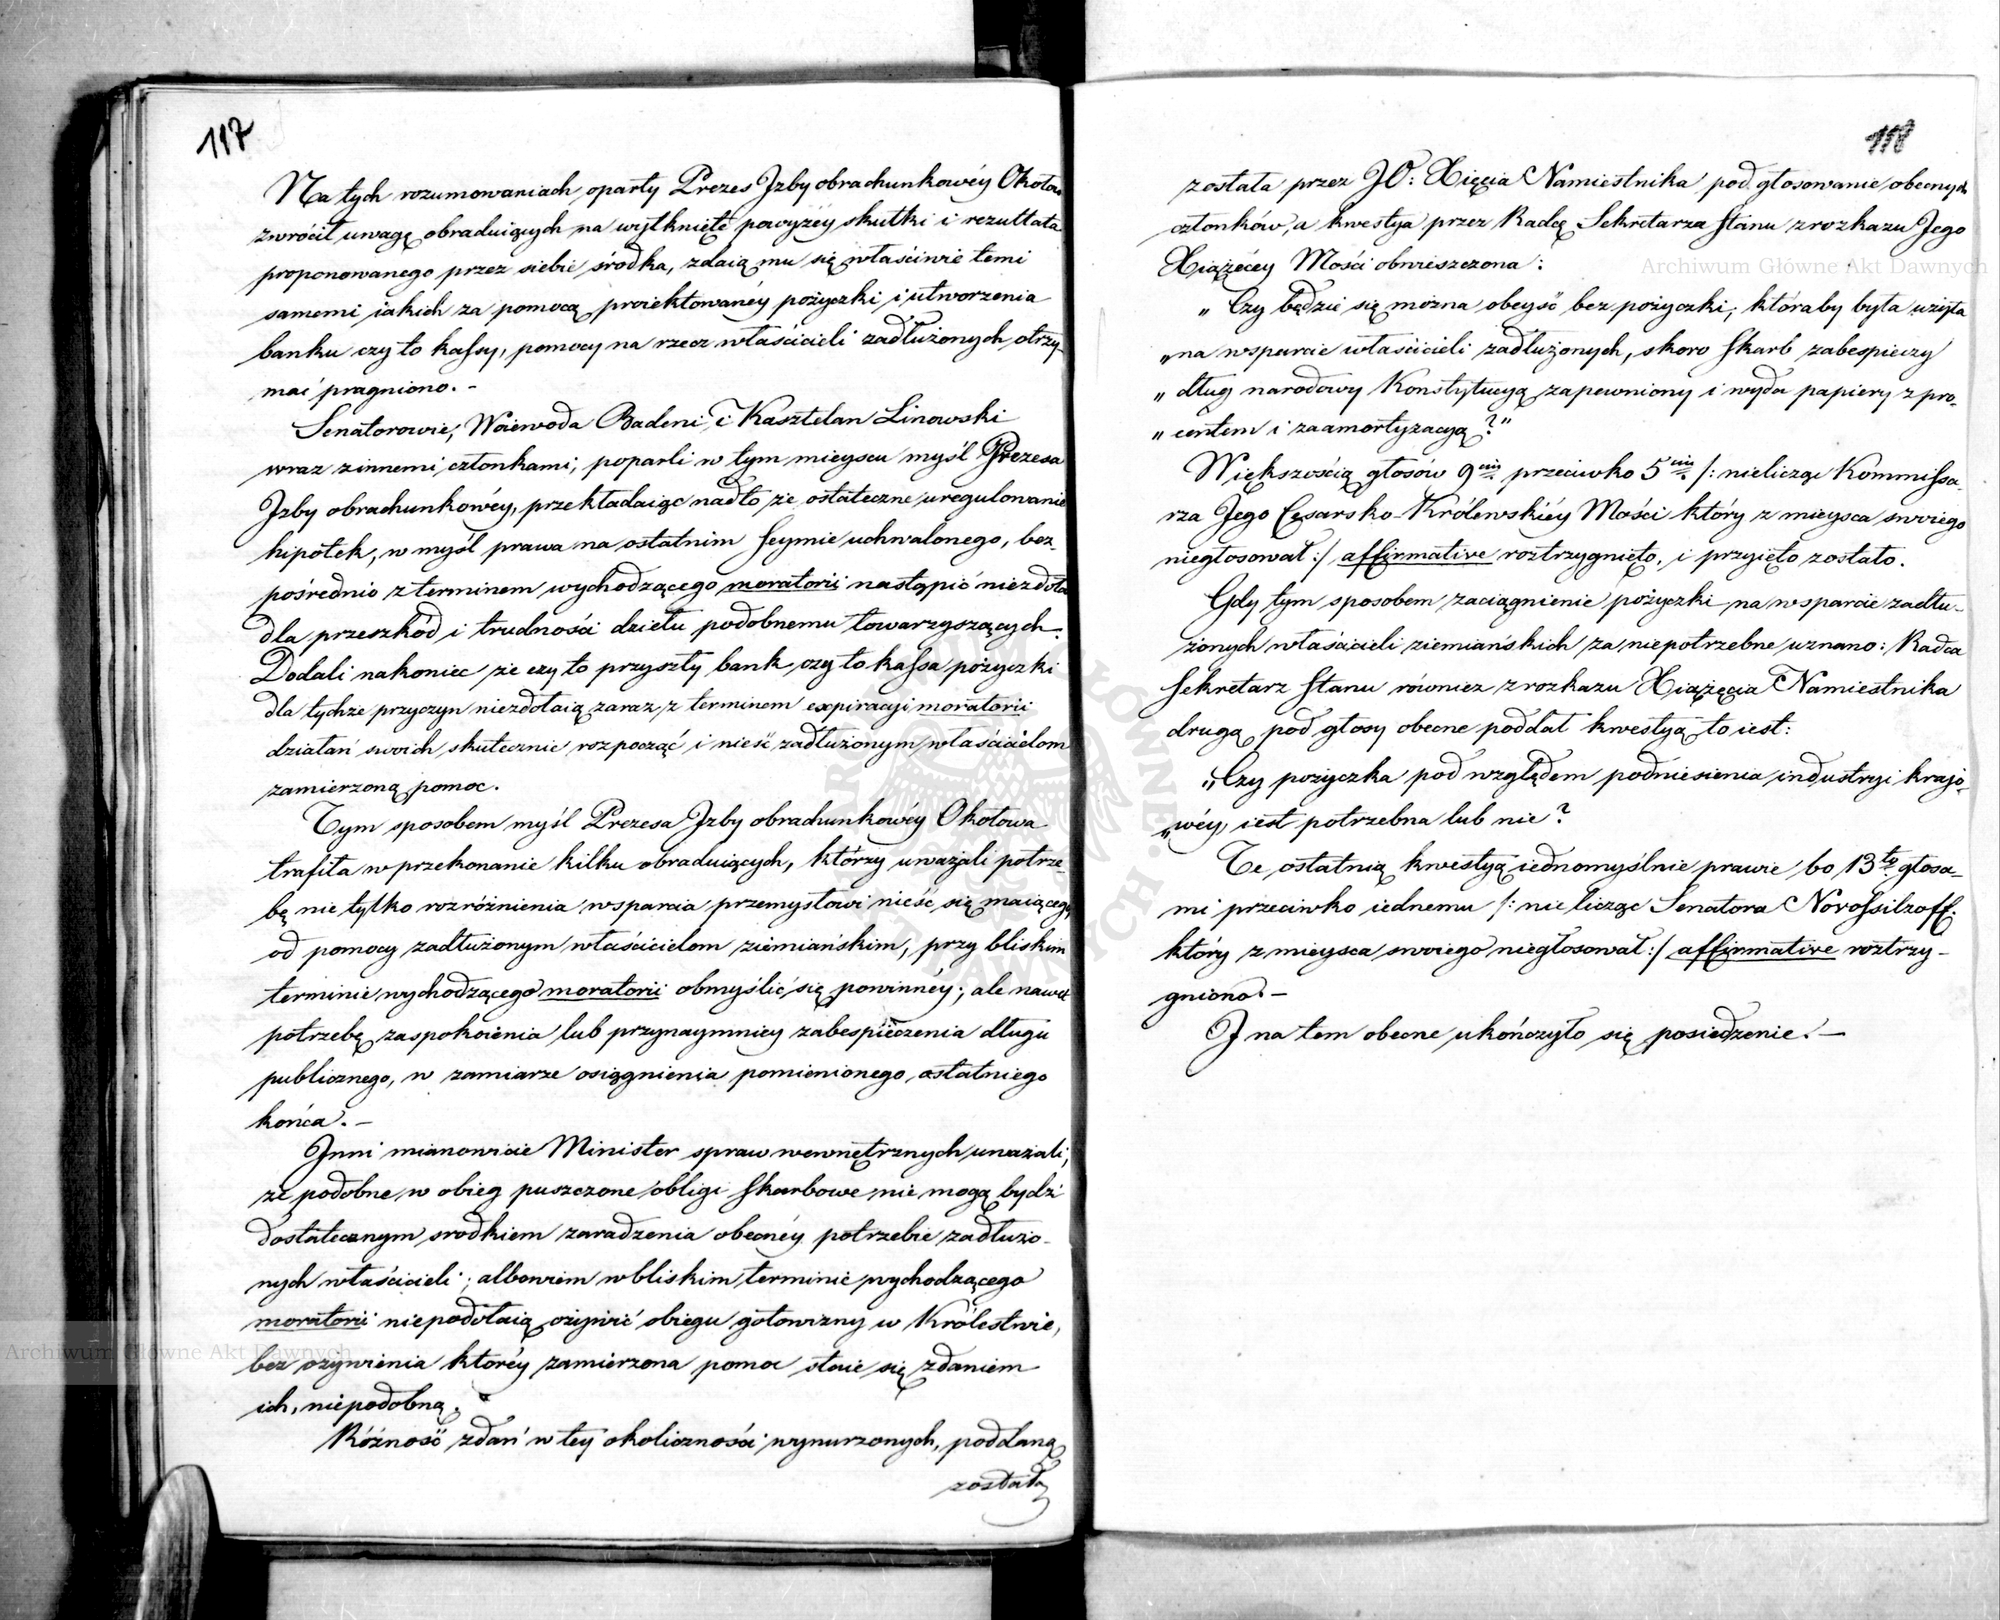 117
Na tych rozumowaniach oparty Prezes Jzby obrachunkowéy Okołow
zwrócił uwagę obraduiących na wytknięte powyżéy skutki i rezultata
proponowanego przez siebie środka, zdaią mu się właściwie temi
samemi iakich za pomocą proiektowanéy pożyczki i utworzenia
banku czy to kassy, pomocy na rzecz właścicieli zadłużonych otrzy-
mać pragniono. -
Senatorowie, Woiewoda Badeni i Kasztelan Linowski
wraz z innemi członkami, poparli w tym mieyscu myśl Prezesa
Jzby obrachunkowéy, przekładaiąc nadto że ostateczne uregulowanie
hipotek, w myśl prawa na ostatnim Seymie uchwalonego, bez-
pośrednio z terminem wychodzącego moratorii nastąpić niezdoła
dla przeszkód i trudności dziełu podobnemu towarzyszących.
Dodali nakoniec że czy to przyszły bank czy to kassa pożyczki
dla tychże przyczyn niezdołaią zaraz z terminem expiracyi moratorii
działań swoich skutecznie rozpocząć i nieść zadłużonym właścicielom
zamierzoną pomoc.
Tym sposobem myśl Prezesa Jzby obrachunkowéy Okołowa
trafiła w przekonanie kilku obraduiących, którzy uważali potrze-
bę nie tylko rozróżnienia wsparcia przemysłowi nieść się maiącego
od pomocy zadłużonym właścicielom ziemiańskim, przy bliskim
terminie wychodzącego moratorii obmyślić się powinnéy; ale nawet
potrzebę zaspokoienia lub przynaymniey zabespieczenia długu
publicznego, w zamiarze osiągnienia pomienionego ostatniego
końca. -
Jnni mianowicie Minister spraw wewnętrznych uważali,
że podobne w obieg puszczone obligi skarbowe nie mogą bydź
dostatecznym srodkiem zaradzenia obecnéy potrzebie zadłużo-
nych właścicieli; albowiem w bliskim terminie wychodzącego
moratorii niepodołaią ożywić obiegu gotowizny w Królestwie,
bez ożywienia któréy zamierzona pomoc staie się zdaniem
ich, niepodobną.
Różność zdań w tey okoliczności wynurzonych, poddaną
została
118
została przez JO: Xięcia Namiestnika pod głosowanie obecnych
członków, a kwestya przez Radcę Sekretarza Stanu z rozkazu Jego
Xiążęcey Mości obwieszczona:
„ Czy będzie się można obeyść bez pożyczki, któraby była użyta
„ na wsparcie właścicieli zadłużonych, skoro Skarb zabespieczy
„ dług narodowy Konstytucyą zapewniony i wyda papiery z pro-
„ centem i zaamortyzacyą?"
Większością głosów 9ciu przeciwko 5ciu /: nielicząc Kommissa-
rza Jego Cesarsko-Królewskiéy Mości który z mieysca swoiego
niegłosował :/ affirmative roztrzygnięto, i przyięto zostało.
Gdy tym sposobem zaciągnienie pożyczki na wsparcie zadłu-
żonych właścicieli ziemiańskich za niepotrzebne uznano: Radca
Sekretarz Stanu również z rozkazu Xiążęcia Namiestnika
drugą pod głosy obecne poddał kwestyą to iest:
„Czy pożyczka pod względem podniesienia industryi krajo-
„wéy iest potrzebna lub nie?
Te ostatnią kwestyą iednomyślnie prawie bo 13to głosa-
mi przeciwko iednemu /: nie licząc Senatora Novossilzoff.
który z mieysca swoiego niegłosował :/ affirmative roztrzy-
gniono. -
J na tem obecne ukończyło się posiedzenie. -
Archiwum Główne Akt Dawnych
Archiwum Główne Akt Dawnych